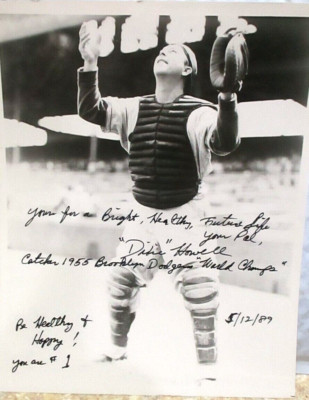 Yours for a Bright, Healthy, Future Life
Your Pal,
"Dixie" Howell
Catcher 1955 Brooklyn Dodgers "World Champs"
Be Healthy &
Happy!
you are # 1
5/12/89